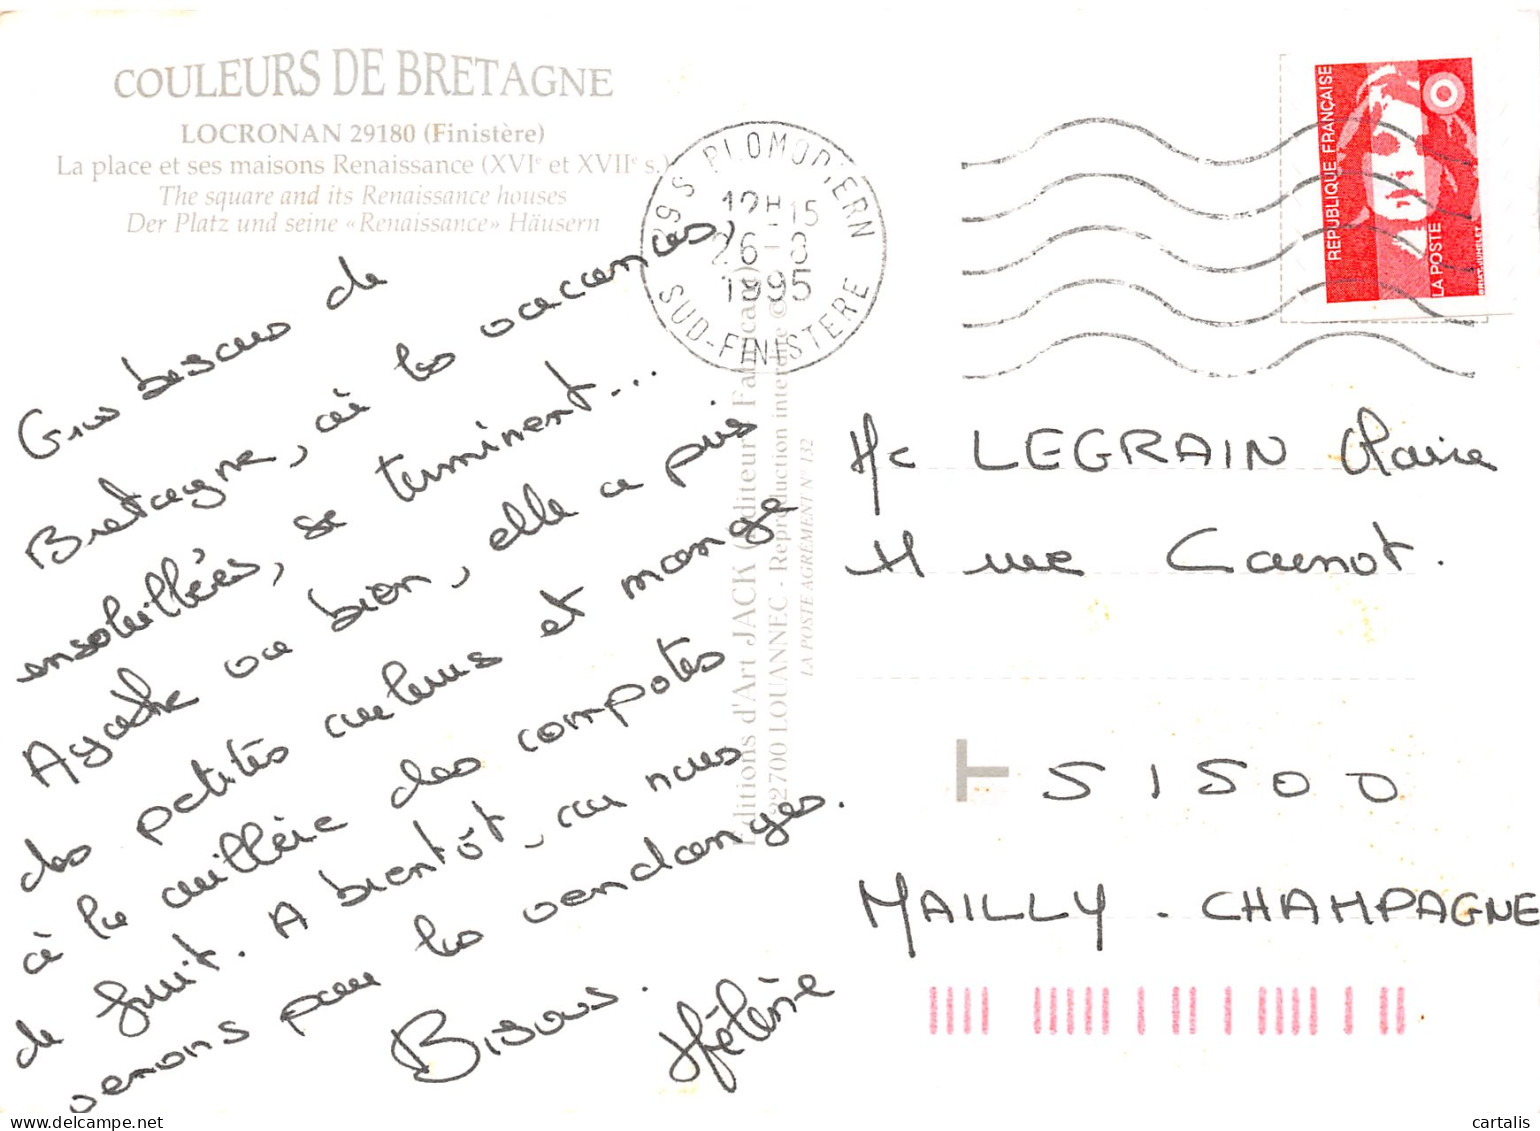 COULEURS DE BRETAGNE
LOCRONAN 29180 (Finistère)
La place et ses maisons Renaissance (XVIᵉ et XVIIᵉ s.)
The square and its Renaissance houses
Der Platz und seine «Renaissance» Häusern
Gros bisous de
Bretagne, où les vacances,
ensoleillées, se terminent...
Agathe va bien, elle a pris
des petites couleurs et mange
à la cuillère des compotes
de fruit. A bientôt, car nous
venons pour les vendanges.
Bisous.
Hélène
Editions d'Art JACK (Editeur Fabricant)
22700 LOUANNEC - Reproduction interdite ©
LA POSTE AGREMENT N° 132
29S PLOMODIERN
12H-15
26-8
1995
SUD-FINISTERE
REPUBLIQUE FRANÇAISE
LA POSTE
LEGRAIN Claire
rue Carnot.
51500
MAILLY-CHAMPAGNE
cartalis
cartalis.com